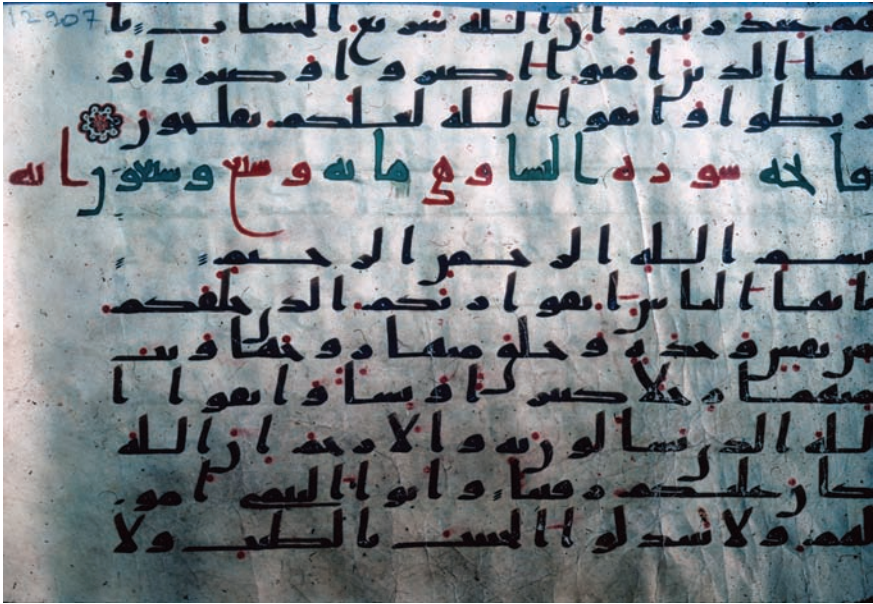 12907
هم عند ربهم ان الله سريع الحساب يا
يها الذين امنوا اصبروا وصبروا و
ربطوا واتقوا الله لعلكم تفلحون
فاتحه سوره النسا وهي مايه وسبع وسبعون ايه
بسم الله الرحمن الرحيم
يايها الناس اتقوا ربكم الذي خلقكم
من نفس وحده وخلق منها زوجها وبث
منهما رجلا كثيرا ونسا واتقوا ا
لله الذي تسالون به والارحم ان الله
كان عليكم رقيبا واتوا اليتمى امو
لهم ولا تتبدلوا الخبيث بالطيب ولا